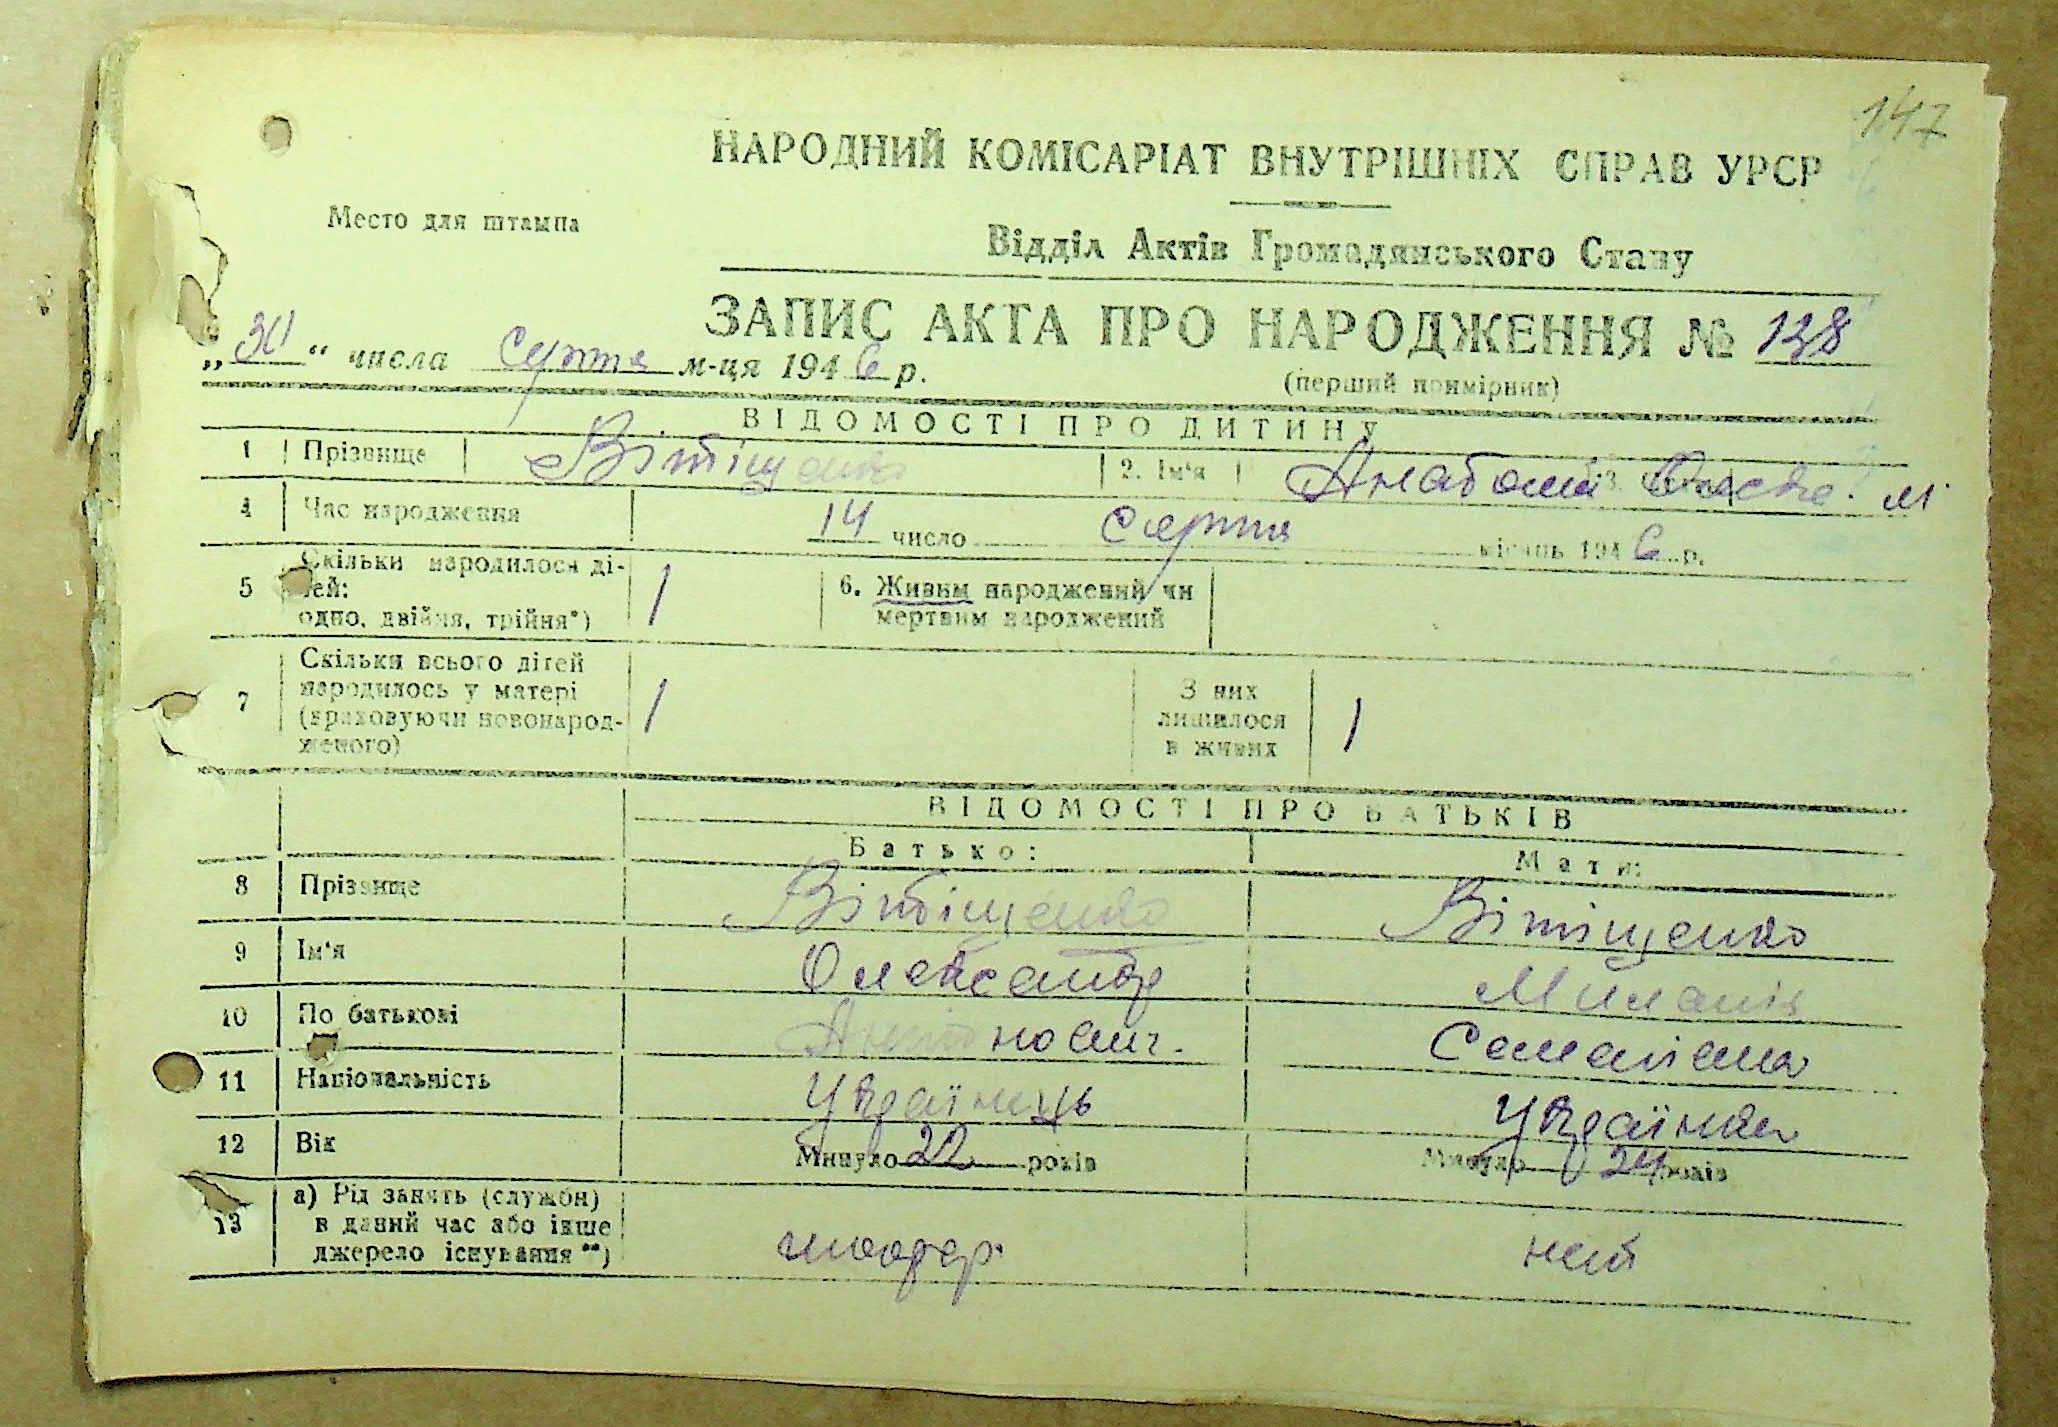 147
НАРОДНИЙ КОМІСАРІАТ ВНУТРІШНІХ СПРАВ УРСР
Место для штампа
Відділ Актів Громадянського Стану
ЗАПИС АКТА ПРО НАРОДЖЕННЯ № 138
„30“ числа серпня м-ця 1946 р.
(перший примірник)
ВІДОМОСТІ ПРО ДИТИНУ
1 Прізвище Вітіщенко 2. Ім'я Анатолій 3. м
4 Час народження 14 число серпня місяць 1946 р.
5 Скільки народилося дітей: одно, двійня, трійня*) 1 6. Живим народжений чи мертвим народжений
7 Скільки всього дітей народилось у матері (враховуючи новонародженого) 1 З них лишилося в живих 1
ВІДОМОСТІ ПРО БАТЬКІВ
Батько: Мати:
8 Прізвище Вітіщенко Вітіщенко
9 Ім'я Олександр Миланія
10 По батькові Семенівна
11 Національність Українець Українка
12 Вік Минуло 22 років Минуло 24 років
13 а) Рід занять (служби) в даний час або інше джерело існування**) шофер нет